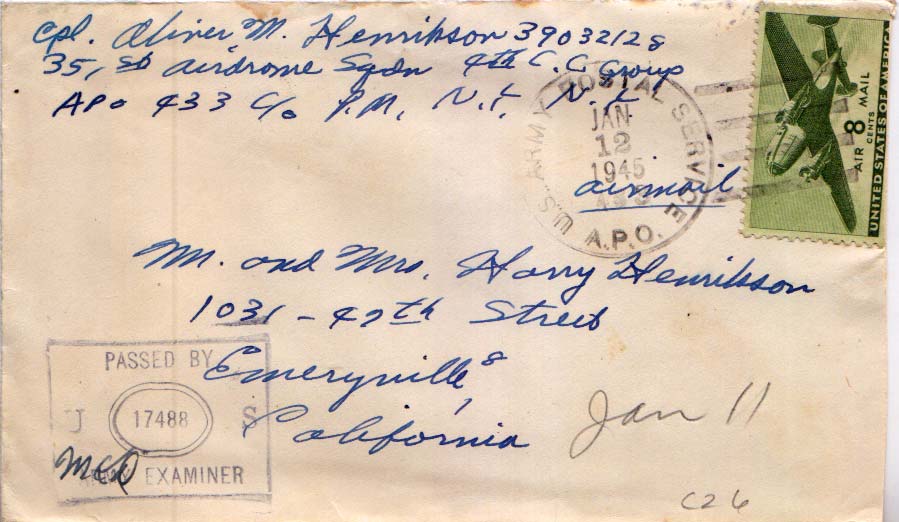 Cpl. Oliver M. Henrikson 39032128
35, st Airdrome Sqdn 4th C.C. Group
APO 433 C/o P.M., N.Y., N.Y.
U.S. ARMY POSTAL SERVICE
JAN
12
1945
A.P.O.
airmail
8
CENTS
AIR MAIL
UNITED STATES OF AMERICA
Mr. and Mrs. Harry Henrikson
1031 - 47th Street
Emeryville, 8
California
PASSED BY
U 17488 S
ARMY EXAMINER
Jan 11
C26